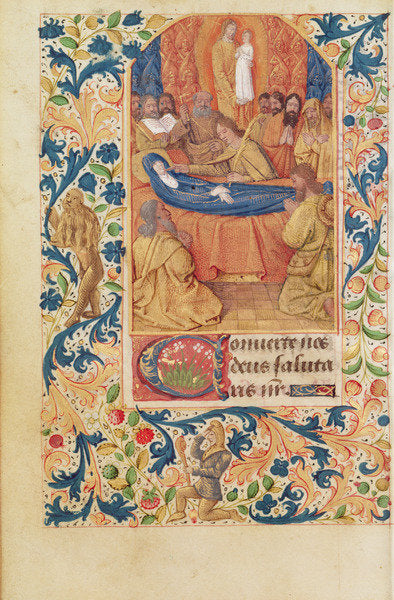 Conuerte nos
deus saluta
ris nr̄.